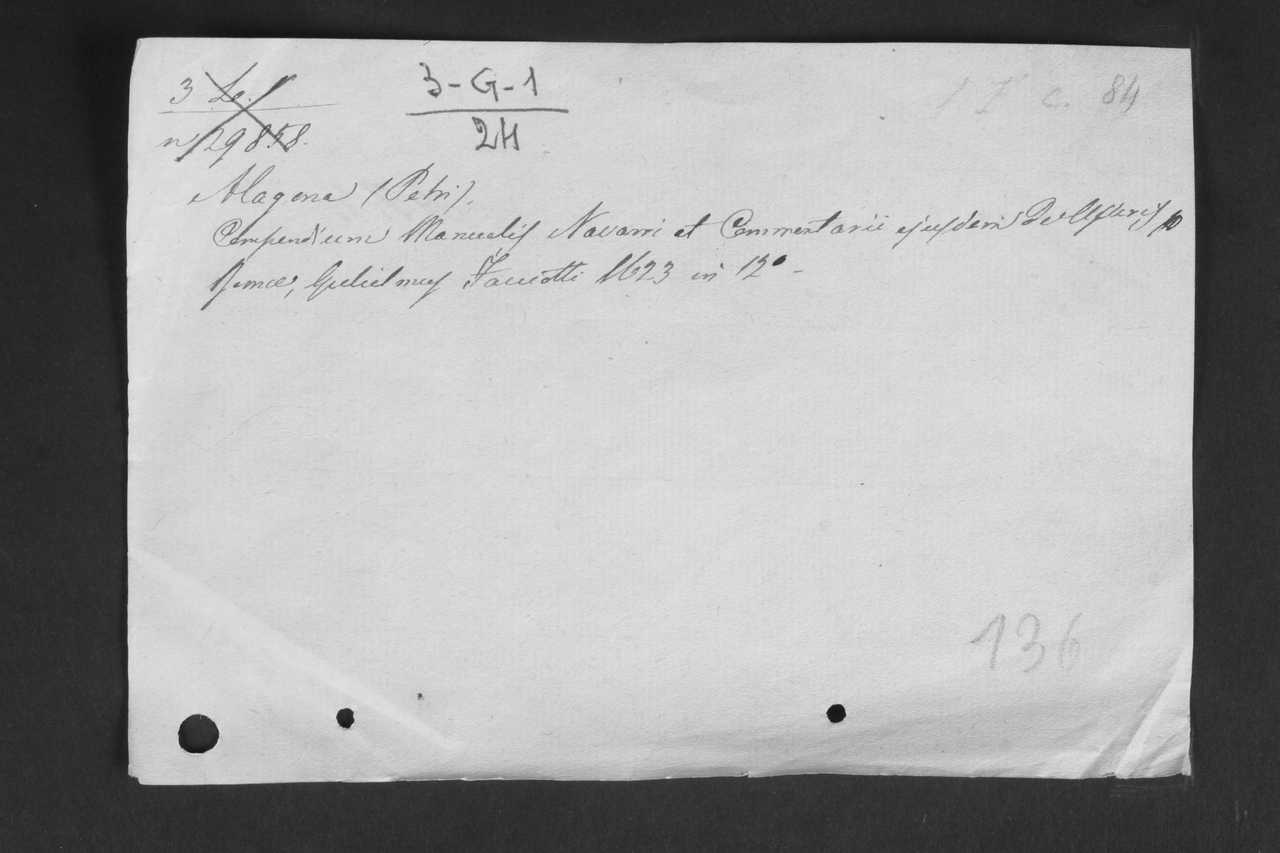 3 Le.
n 29858.
3-G-1
2H
c. 84
Alagona (Petri).
Compendium Manualis Navarri et Commentarii ejusdem De Usuris
Romæ, Gulielmus Facciotti 1623 in 12°-
136